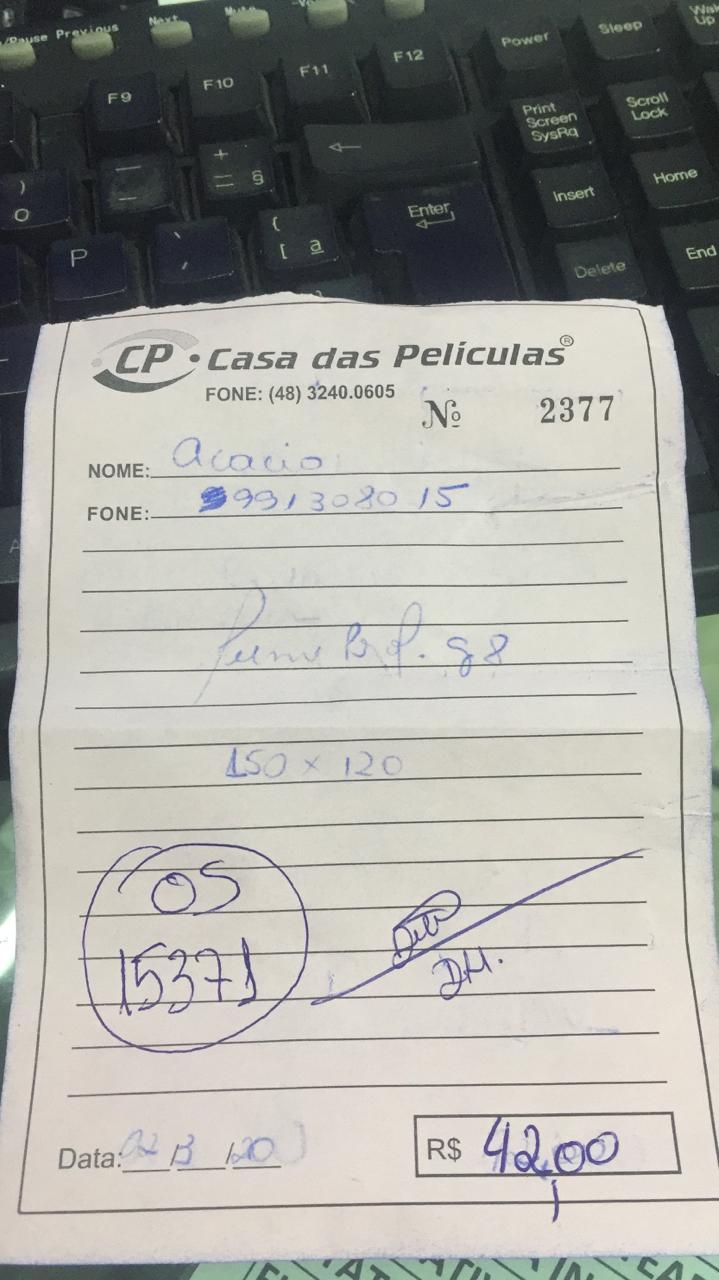 /Pause Previous Next Mute
Power Sleep Wak Up
F9 F10 F11 F12
Print Screen SysRq Scroll Lock
) 0 — - + = § ←
Insert Home
P ` ´ { [ ª Enter
Delete End
CP • Casa das Películas®
FONE: (48) 3240.0605
Nº 2377
NOME: Acacio
FONE: 991308015
G8
150 x 120
OS
15371
DH.
Data: 02/3/20
R$ 42,00